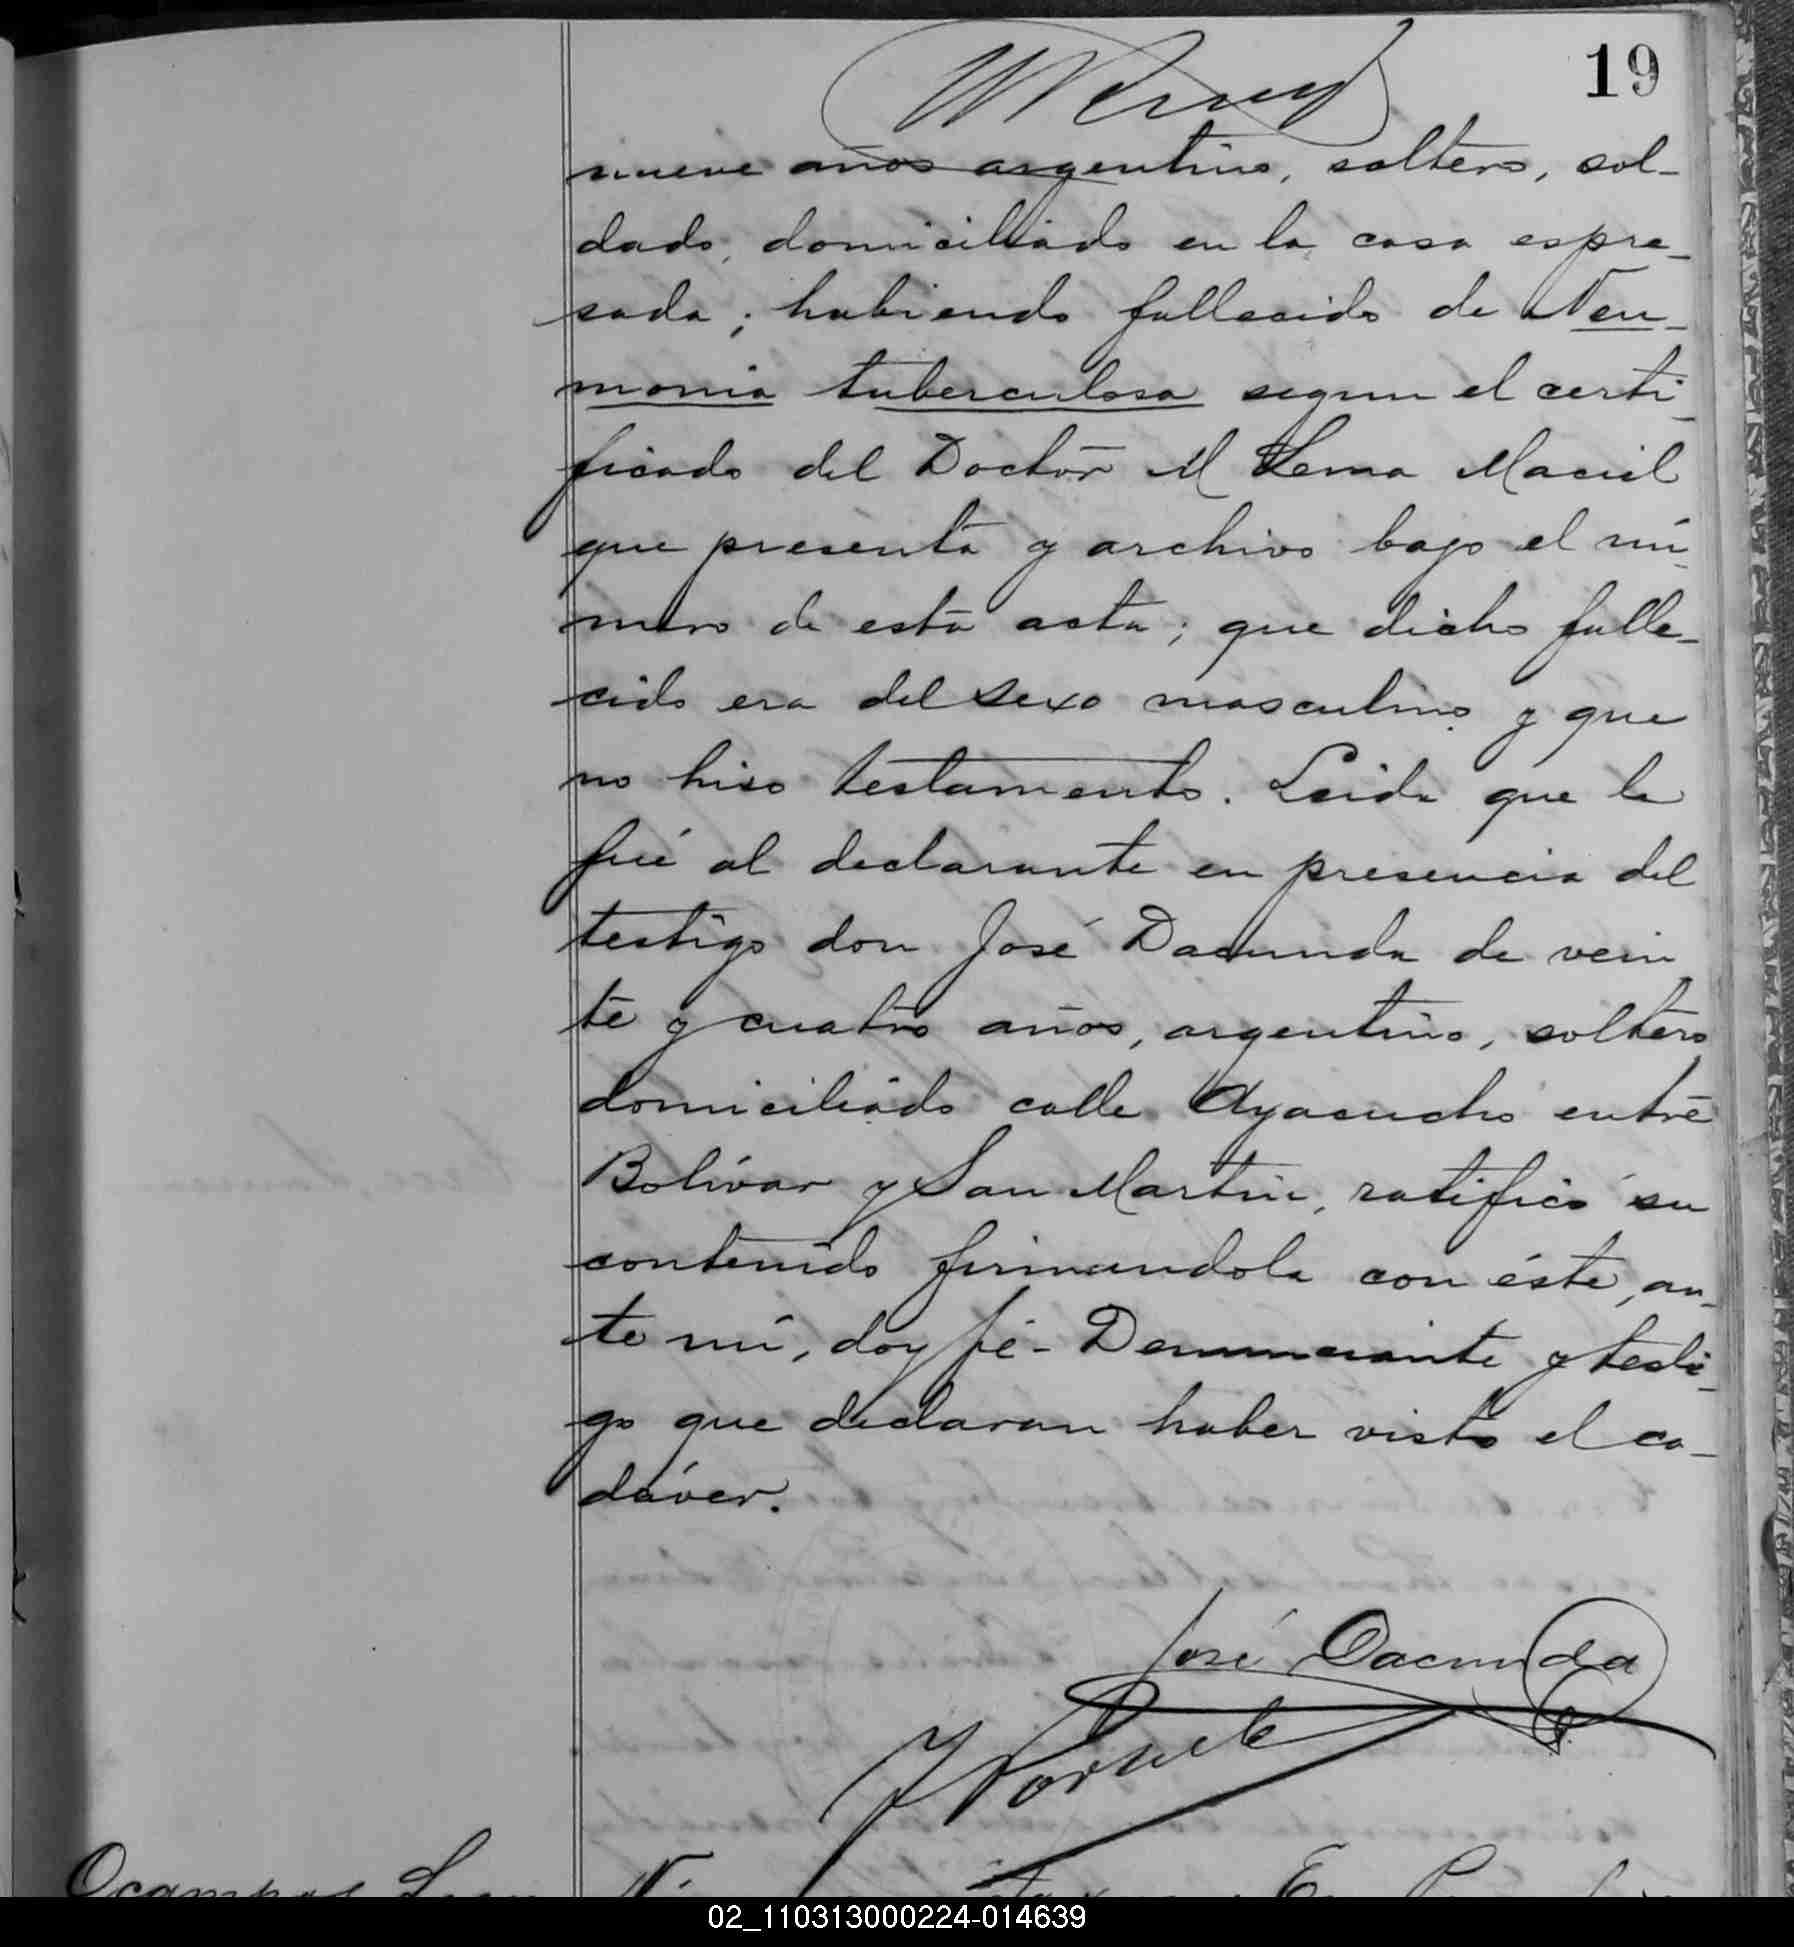 19
nueve años argentino, soltero, sol-
dado, domiciliado en la casa espre-
sada; habiendo fallecido de Neu-
monia tuberculosa segun el certi-
ficado del Doctor M Lema Maciel
que presenta y archivo bajo el nú-
mero de esta acta; que dicho falle-
cido era del sexo masculino y que
no hiso testamento. Leida que le
fué al declarante en presencia del
testigo don José Dacunda de vein
te y cuatro años, argentino, soltero
domiciliado calle Ayacucho entre
Bolívar y San Martin, ratificó su
contenido firmandola con éste, an-
te mí, doy fé- Denunciante y testi-
go que declaran haber visto el ca-
dáver.
José Dacunda
Ocampos
02_110313000224-014639